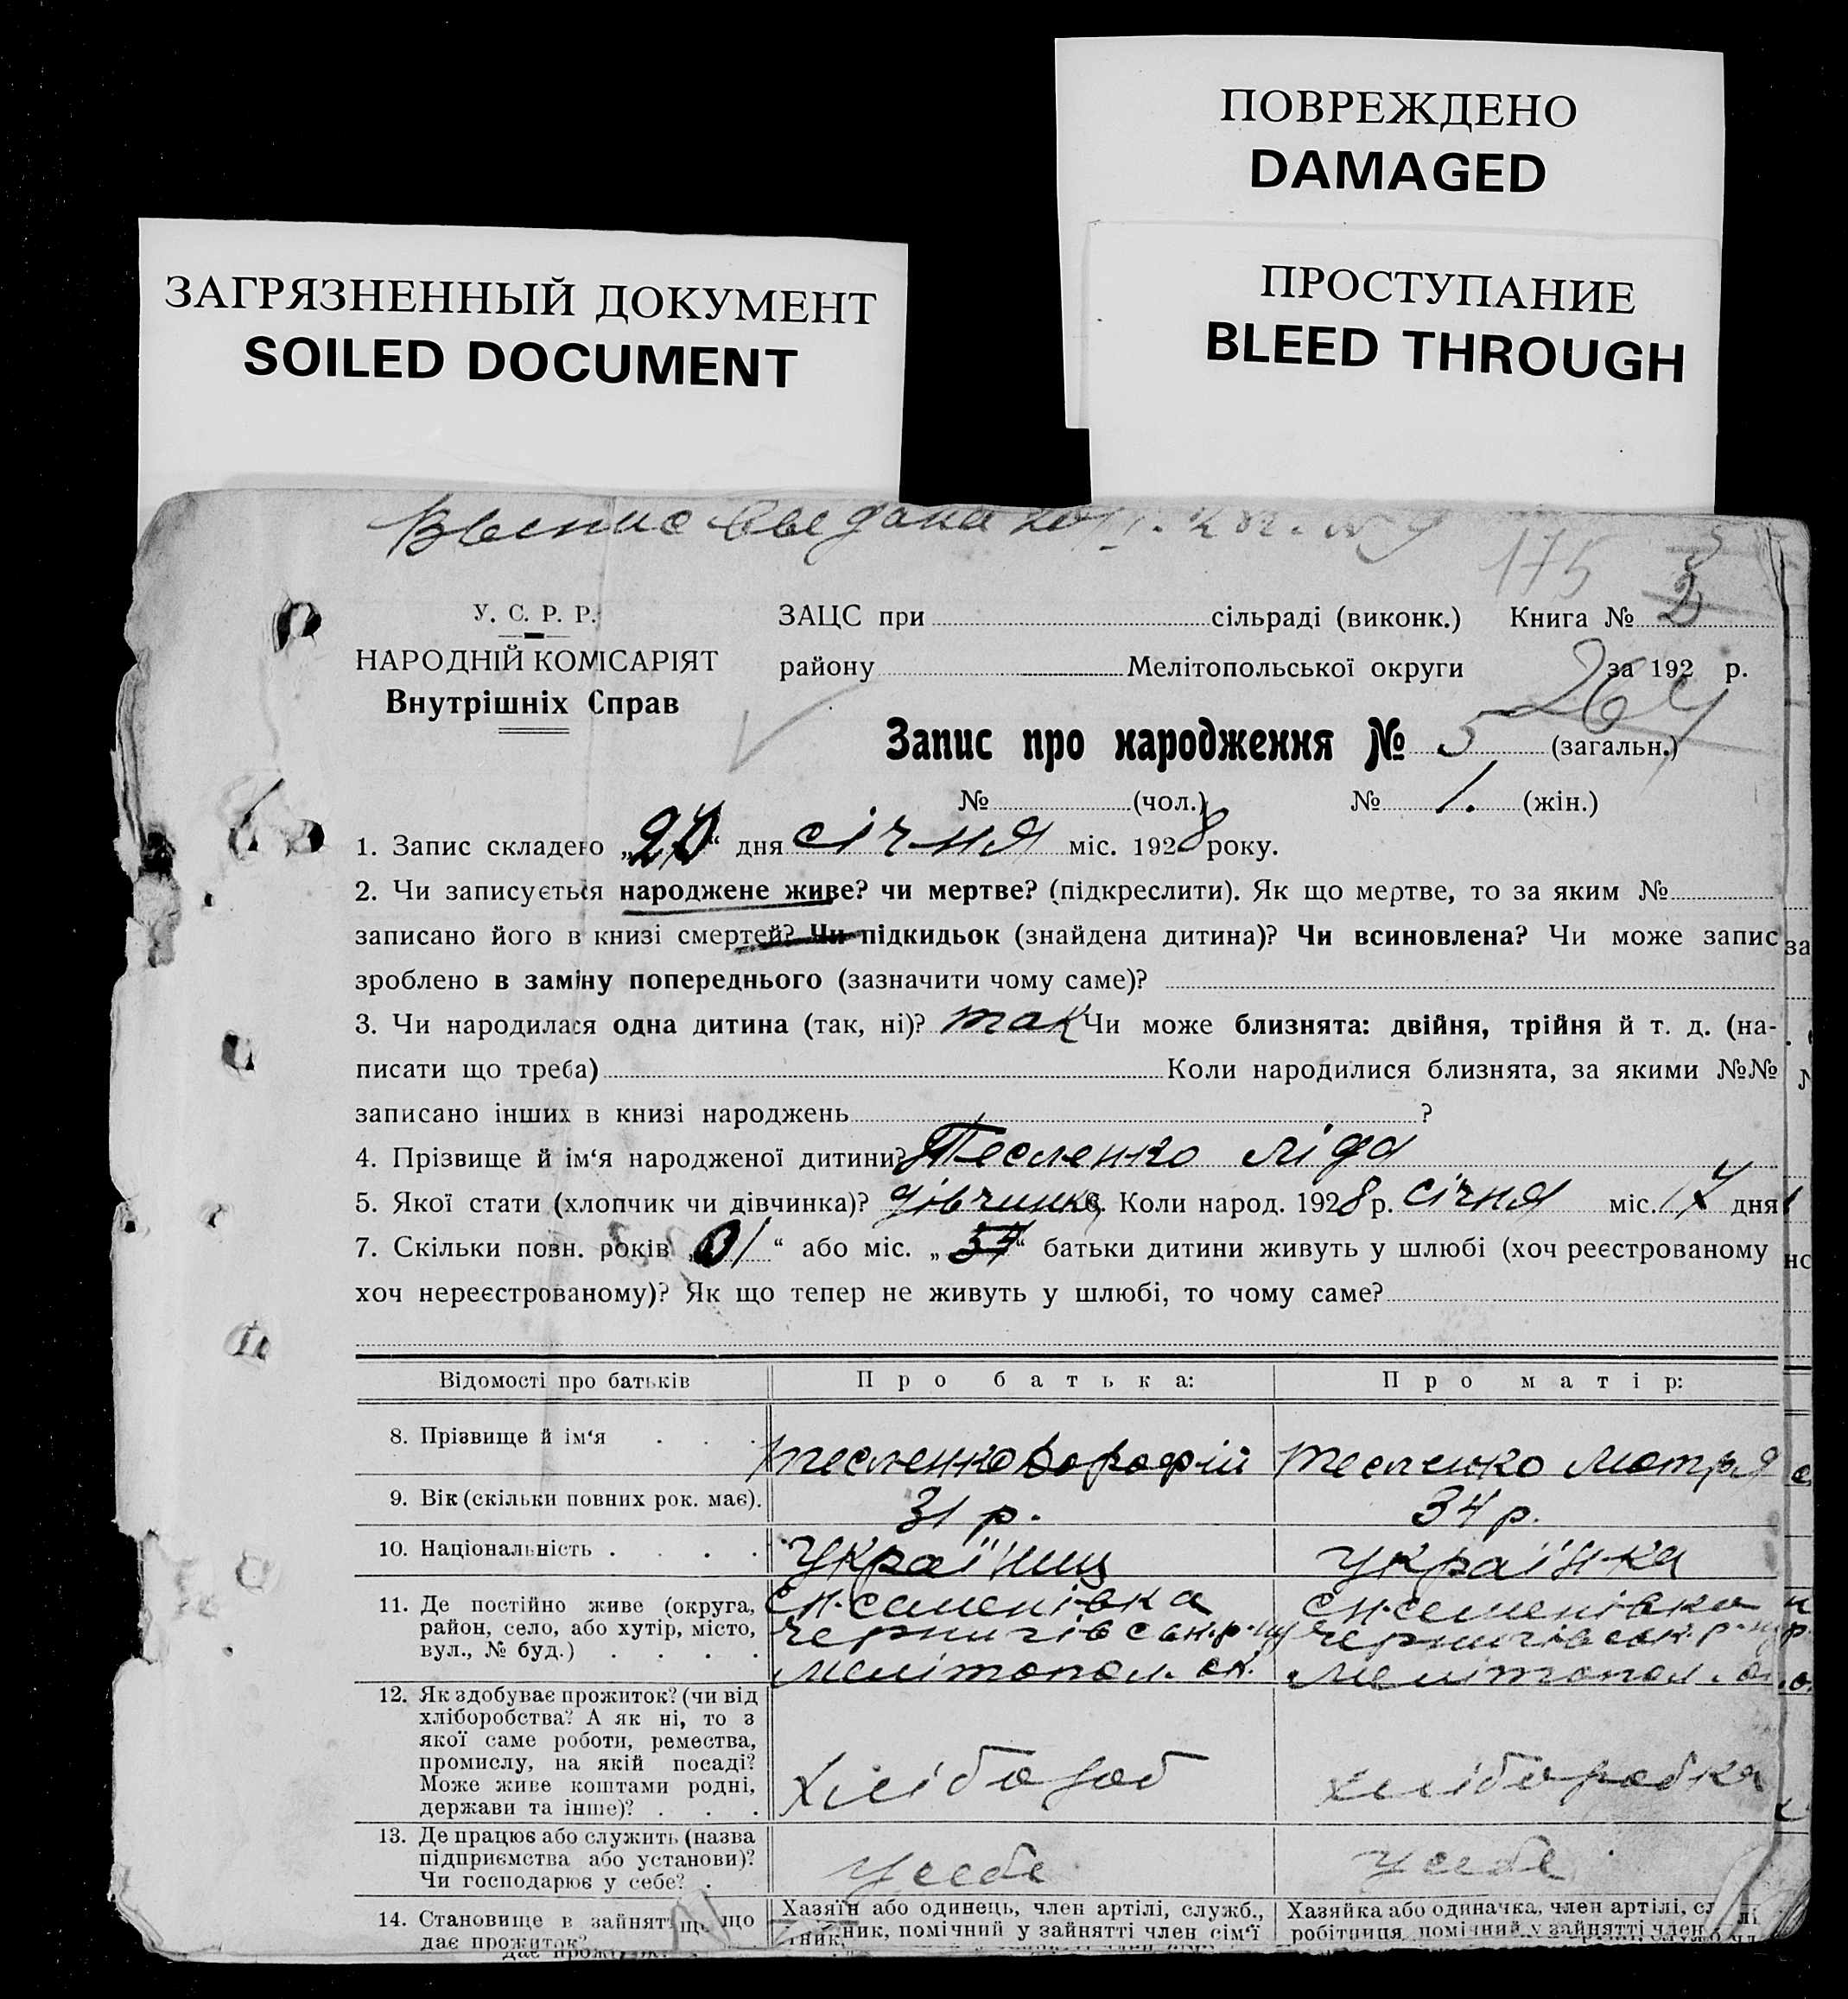 ПОВРЕЖДЕНО
DAMAGED
ПРОСТУПАНИЕ
BLEED THROUGH
ЗАГРЯЗНЕННЫЙ ДОКУМЕНТ
SOILED DOCUMENT
175
У. С. Р. Р.
НАРОДНІЙ КОМІСАРІЯТ
Внутрішніх Справ
ЗАЦС при сільраді (виконк.) Книга № 2
району Мелітопольської округи за 192 р.
264
Запис про народження № 5 (загальн.)
№ (чол.) № 1. (жін.)
1. Запис складено „ “ дня січня міс. 1928 року.
2. Чи записується народжене живе? чи мертве? (підкреслити). Як що мертве, то за яким №
записано його в книзі смертей? Чи підкидьок (знайдена дитина)? Чи всиновлена? Чи може запис
зроблено в заміну попереднього (зазначити чому саме)?
3. Чи народилася одна дитина (так, ні)? так Чи може близнята: двійня, трійня й т. д. (на-
писати що треба) Коли народилися близнята, за якими №№
записано інших в книзі народжень ?
4. Прізвище й ім‘я народженої дитини? Тесленко Ліда
5. Якої стати (хлопчик чи дівчинка)? дівчинка 6. Коли народ. 1928 р. січня міс. 17 дня
7. Скільки повн. років „ “ або міс. „ “ батьки дитини живуть у шлюбі (хоч реєстрованому
хоч нереєстрованому)? Як що тепер не живуть у шлюбі, то чому саме?
Відомості про батьків Про батька: Про матір:
8. Прізвище й ім‘я . . . Тесленко Дорофій Тесленко Мотря
9. Вік (скільки повних рок. має). 31 р. 34 р.
10. Національність . . . . Українц Українка
11. Де постійно живе (округа, район, село, або хутір, місто, вул., № буд.) . . . .
Семенівка
Чернигівськ. р-ну
Мелітопол. ок.
Семенівка
Чернигівськ. р-ну
Мелітопол. ок.
12. Як здобуває прожиток? (чи від
хліборобства? А як ні, то з
якої саме роботи, ремества,
промислу, на якій посаді?
Може живе коштами родні,
держави та інше)? . . .
Хлібороб хліборобка
13. Де працює або служить (назва
підприємства або установи)?
Чи господарює у себе? .
У себе У себе
14. Становище в занятті, що
дає прожиток?
Хазяїн або одинець, член артілі, служб.,
помічний у зайнятті член сім‘ї
Хазяйка або одиначка, член артілі,
робітниця, помічний у зайнятті член